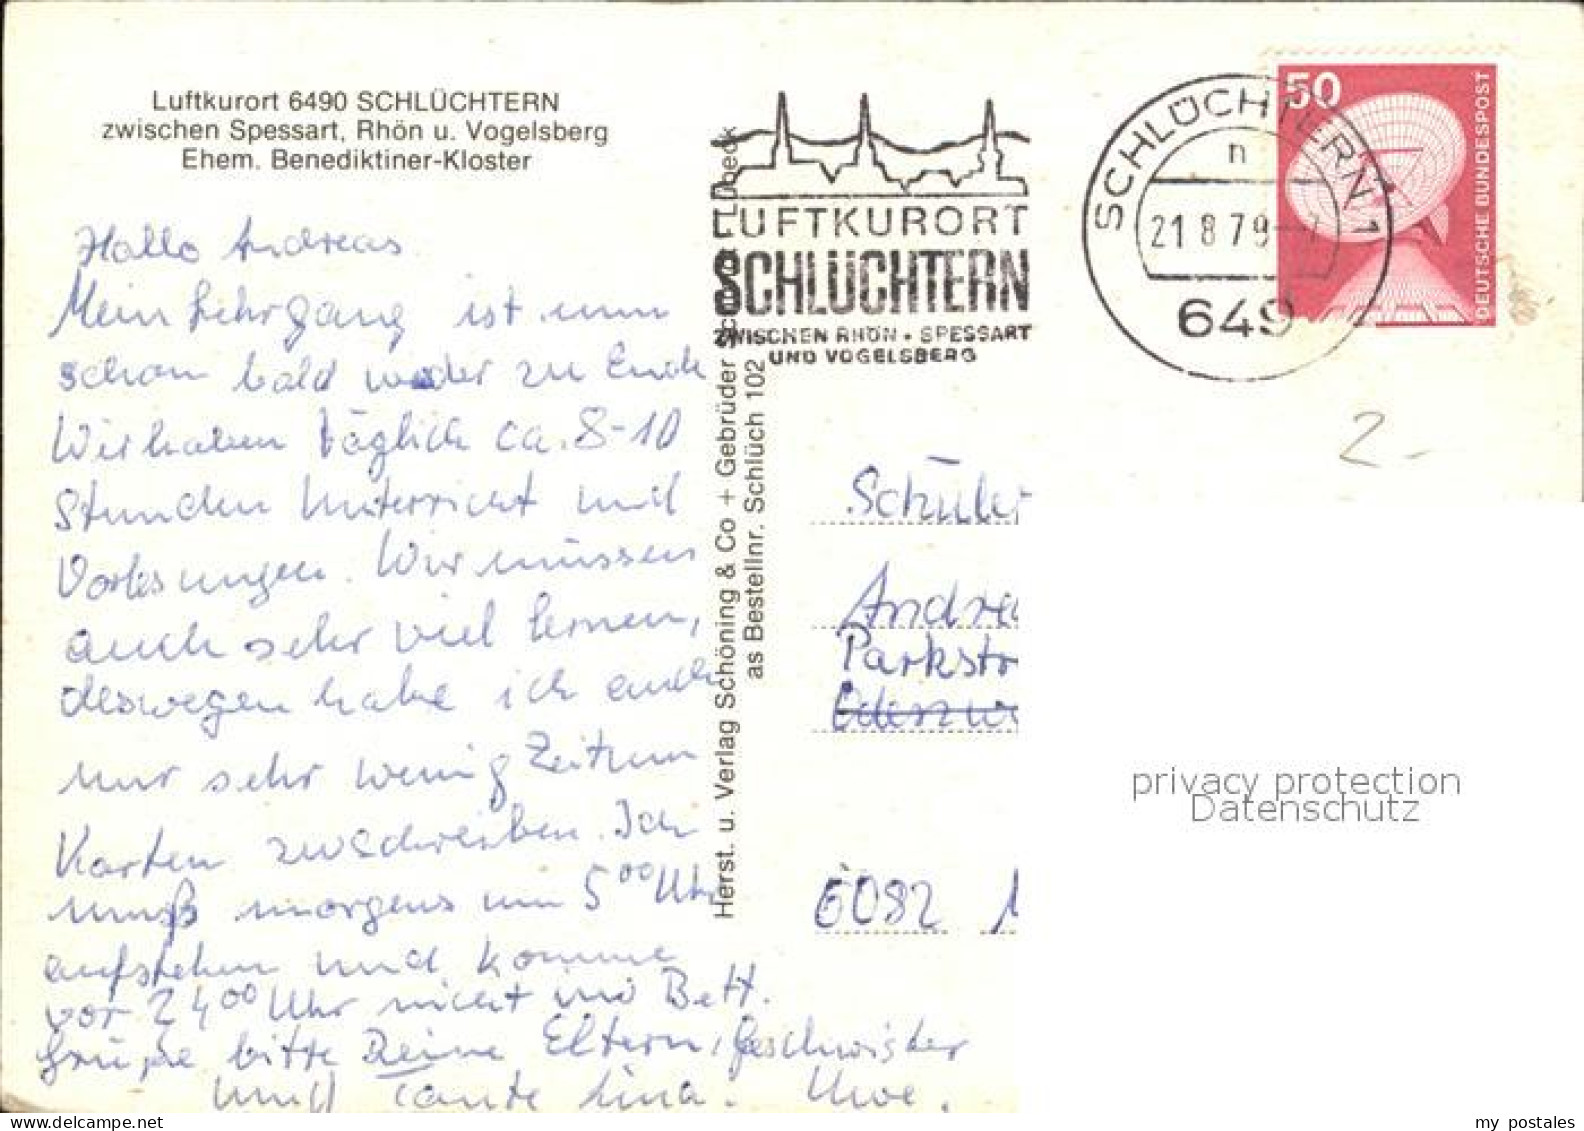 Luftkurort 6490 SCHLÜCHTERN
zwischen Spessart, Rhön u. Vogelsberg
Ehem. Benediktiner-Kloster
Hallo Andreas
Mein Lehrgang ist nun
schon bald wieder zu Ende
Wir haben täglich ca. 8-10
Stunden Unterricht und
Vorlesungen. Wir müssen
auch sehr viel lernen,
deswegen habe ich auch
nur sehr wenig Zeit um
Karten zu schreiben. Ich
muß morgens um 5⁰⁰ Uhr
aufstehen und komme
vor 24⁰⁰ Uhr nicht ins Bett.
Grüße bitte Deine Eltern, Geschwister
und Tante Lina. Uwe.
Herst. u. Verlag Schöning & Co + Gebrüder Lübeck
as Bestellnr. Schlüch 102
LUFTKURORT
SCHLÜCHTERN
ZWISCHEN RHÖN · SPESSART
UND VOGELSBERG
SCHLÜCHTERN 1
n
21.8.79
649
50
DEUTSCHE BUNDESPOST
2.-
Schüler
Andrea
Parkstr
6082
privacy protection
Datenschutz
my postales